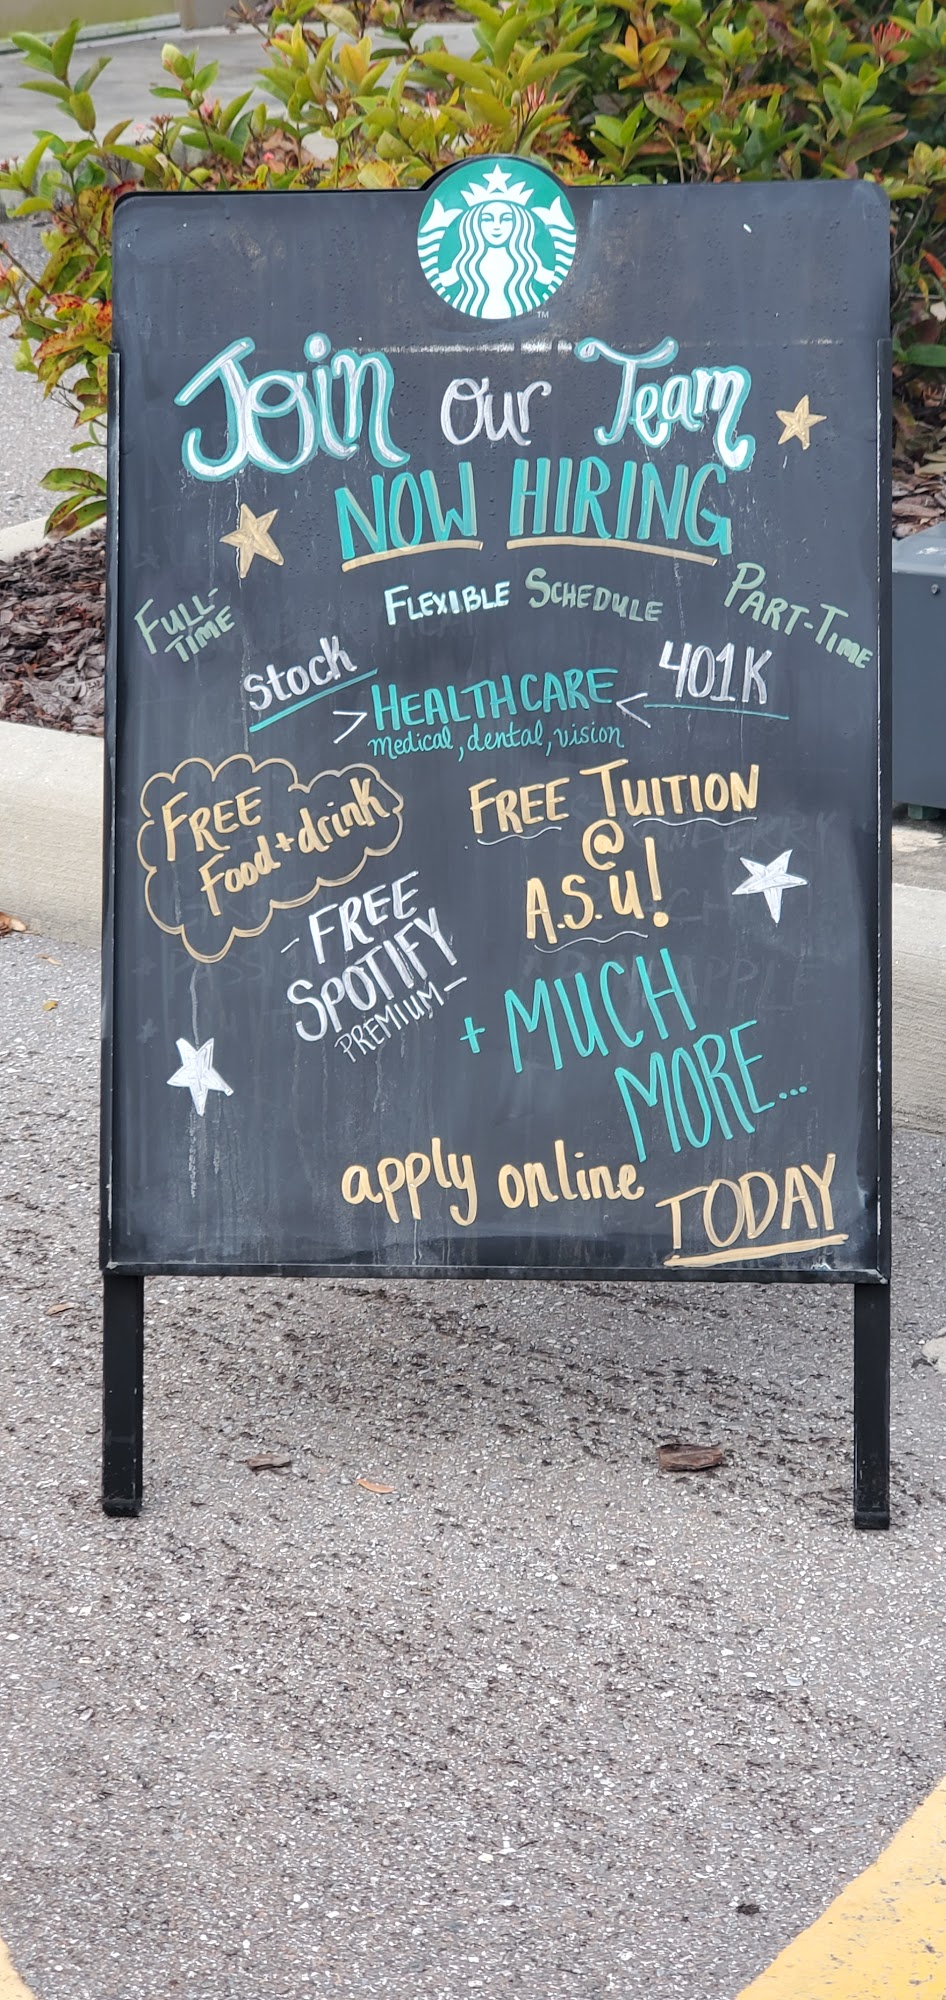 TM
Join our Team
NOW HIRING
FULL-
TIME
FLEXIBLE SCHEDULE
PART-TIME
Stock
401K
HEALTHCARE
medical, dental, vision
FREE
Food + drink
FREE TUITION
@
A.S.U!
- FREE
SPOTIFY
PREMIUM -
+ MUCH
MORE...
apply online
TODAY